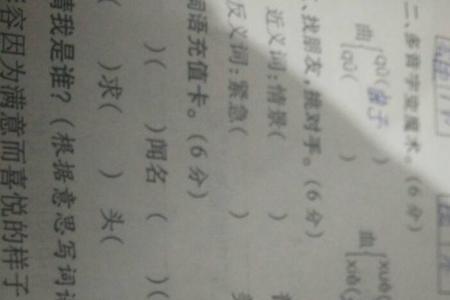 二、多音字变魔术。(6分)
曲 ( 子 ) 血 xuè
( ) xiě(
、找朋友,挑对手。(6分)
近义词:情景( )
反义词:紧急( )
词语充值卡。(6分)
)( )闻名 ( )(
)求( )头(
猜我是谁?(根据意思写词
容因为满意而喜悦的样子